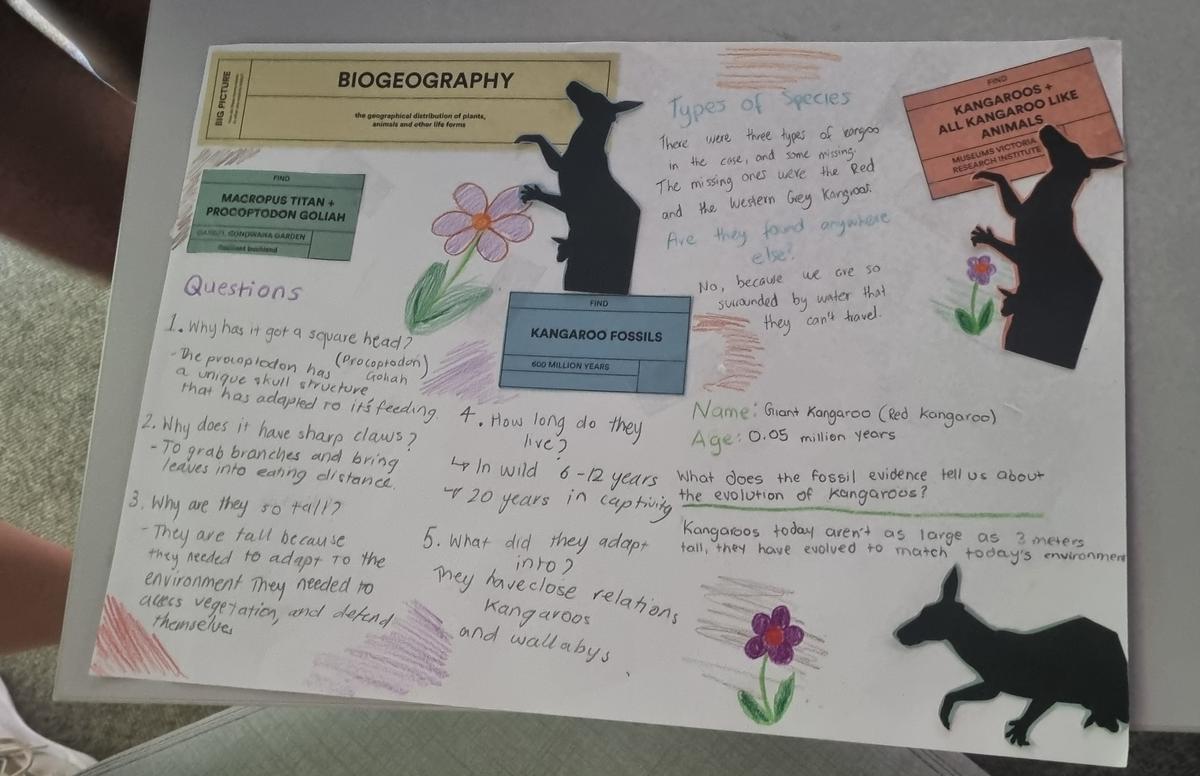 BIG PICTURE
BIOGEOGRAPHY
the geographical distribution of plants,
animals and other life forms
FIND
MACROPUS TITAN +
PROCOPTODON GOLIAH
GONDWANA GARDEN
Resilient bushland
Questions
1. Why has it got a square head?
(Procoptodon)
Goliah
- The procoptodon has
a unique skull structure
that has adapted to it's feeding.
2. Why does it have sharp claws?
- To grab branches and bring
leaves into eating distance.
3. Why are they so tall?
- They are tall because
they needed to adapt to the
environment They needed to
access vegetation, and defend
themselves
FIND
KANGAROO FOSSILS
600 MILLION YEARS
4. How long do they
live?
↳ In wild 6-12 years
↳ 20 years in captivity
5. What did they adapt
into?
They have close relations
Kangaroos
and wallabys
Types of Species
There were three types of
in the case, and some missing.
The missing ones were the Red
and the Western Grey Kangroos.
Are they found anywhere
else?
No, because we are so
surrounded by water that
they can't travel.
FIND
KANGAROOS +
ALL KANGAROO LIKE
ANIMALS
MUSEUMS VICTORIA
RESEARCH INSTITUTE
Name: Giant Kangaroo (Red kangaroo)
Age: 0.05 million years
What does the fossil evidence tell us about
the evolution of kangaroos?
Kangaroos today aren't as large as 3 meters
tall, they have evolved to match today's environment